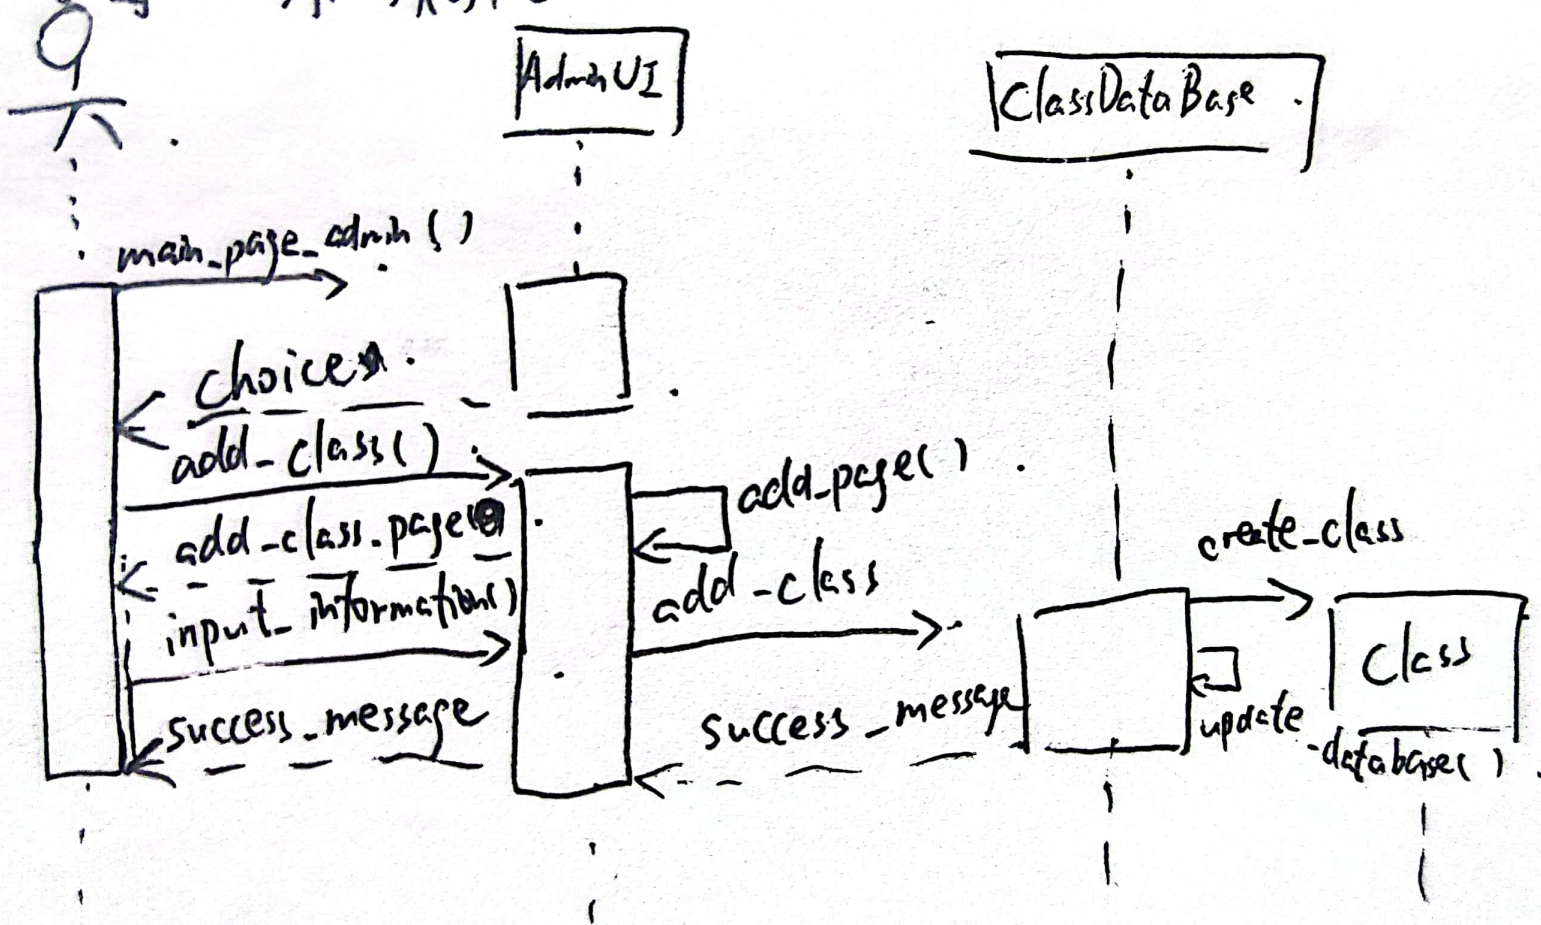 AdminUI
ClassDataBase
main_page_admin()
choices
add_class()
add_page()
add_class_page
create_class
add_class
input_information()
Class
success_message
success_message
update
_database()